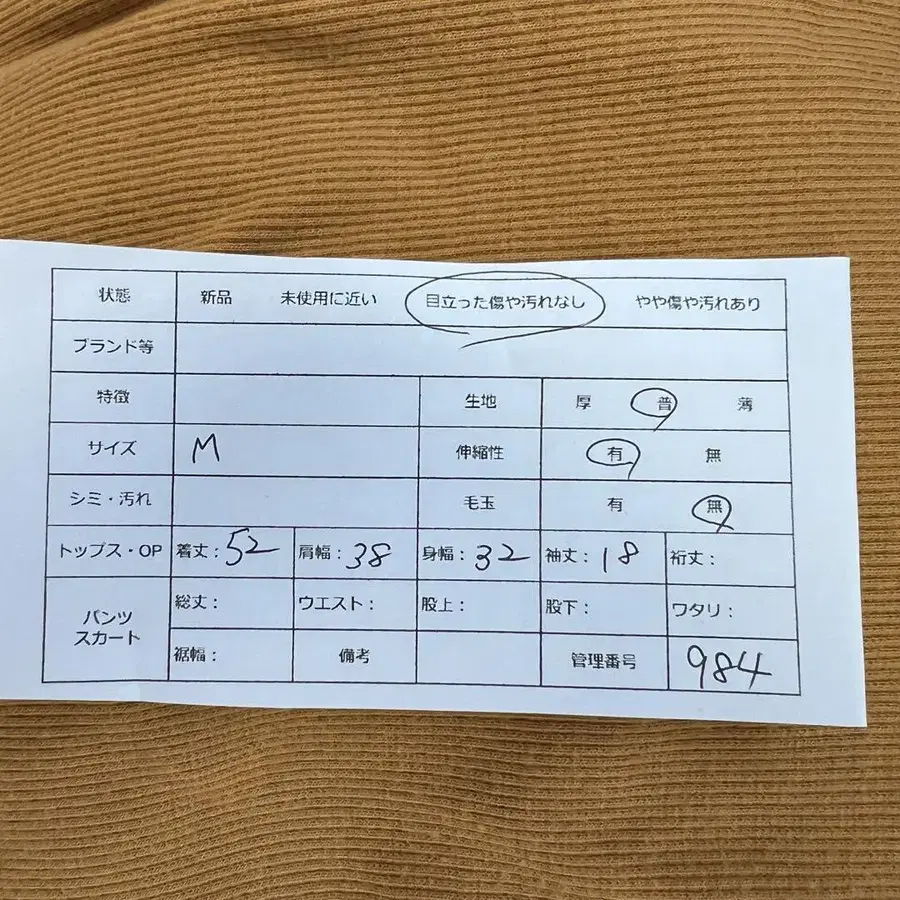 状態 新品 未使用に近い 目立った傷や汚れなし やや傷や汚れあり
ブランド等
特徴 生地 厚 普 薄
サイズ M 伸縮性 有 無
シミ・汚れ 毛玉 有 無
トップス・OP 着丈：52 肩幅：38 身幅：32 袖丈：18 裄丈：
パンツ スカート 総丈： ウエスト： 股上： 股下： ワタリ：
裾幅： 備考 管理番号 984